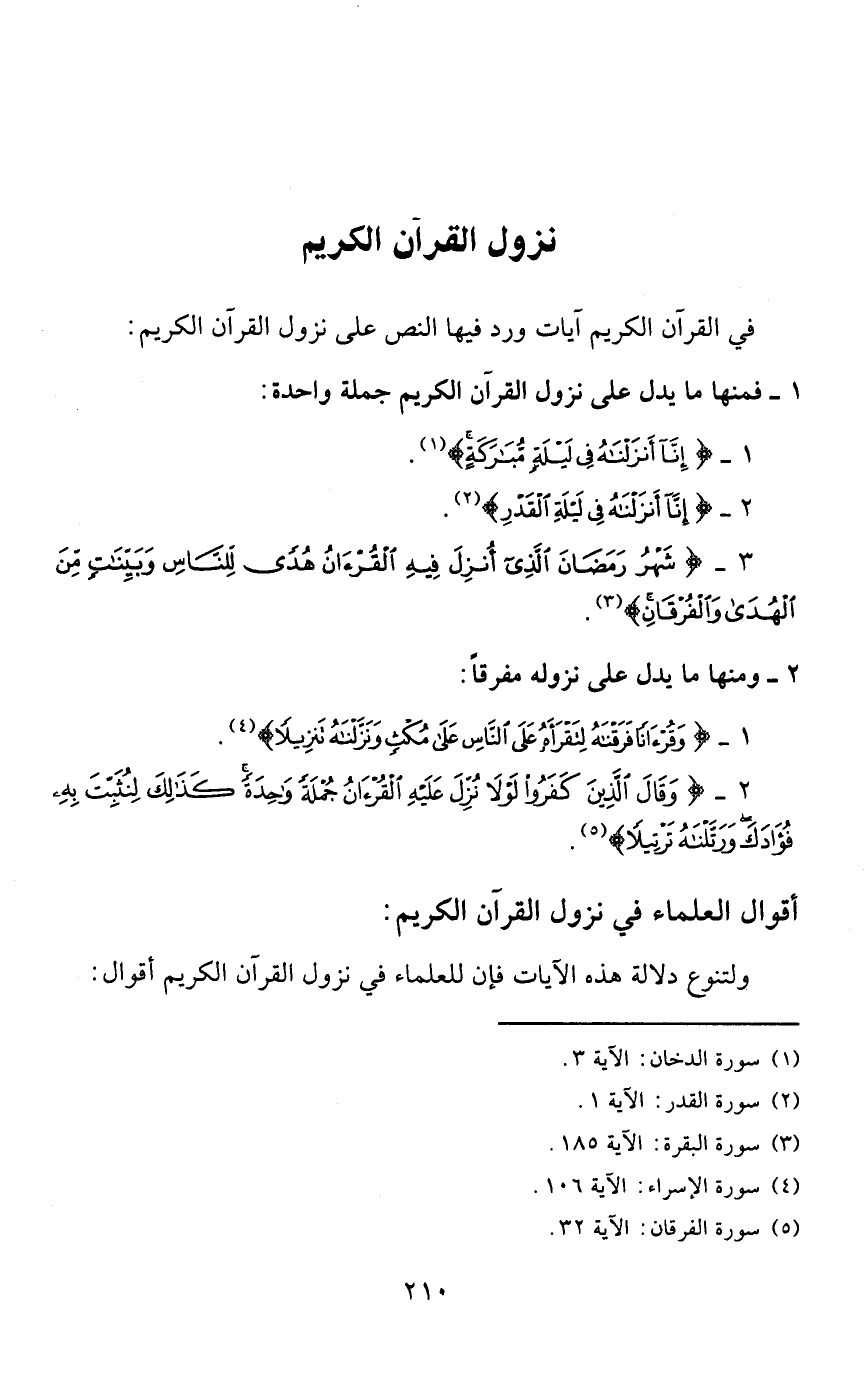 نزول القرآن الكريم
في القرآن الكريم آيات ورد فيها النص على نزول القرآن الكريم:
١ ـ فمنها ما يدل على نزول القرآن الكريم جملة واحدة:
١ ـ ﴿ إِنَّآ أَنزَلْنَٰهُ فِى لَيْلَةٍ مُّبَٰرَكَةٍ ۚ﴾(١).
٢ ـ ﴿ إِنَّآ أَنزَلْنَٰهُ فِى لَيْلَةِ ٱلْقَدْرِ﴾(٢).
٣ ـ ﴿ شَهْرُ رَمَضَانَ ٱلَّذِىٓ أُنزِلَ فِيهِ ٱلْقُرْءَانُ هُدًى لِّلنَّاسِ وَبَيِّنَٰتٍ مِّنَ
ٱلْهُدَىٰ وَٱلْفُرْقَانِ ۚ﴾(٣).
٢ ـ ومنها ما يدل على نزوله مفرقاً:
١ ـ ﴿ وَقُرْءَانًا فَرَقْنَٰهُ لِتَقْرَأَهُۥ عَلَى ٱلنَّاسِ عَلَىٰ مُكْثٍ وَنَزَّلْنَٰهُ تَنزِيلًا﴾(٤).
٢ ـ ﴿ وَقَالَ ٱلَّذِينَ كَفَرُوا۟ لَوْلَا نُزِّلَ عَلَيْهِ ٱلْقُرْءَانُ جُمْلَةً وَٰحِدَةً ۚ كَذَٰلِكَ لِنُثَبِّتَ بِهِۦ
فُؤَادَكَ ۖ وَرَتَّلْنَٰهُ تَرْتِيلًا﴾(٥).
أقوال العلماء في نزول القرآن الكريم:
ولتنوع دلالة هذه الآيات فإن للعلماء في نزول القرآن الكريم أقوال:
(١) سورة الدخان: الآية ٣.
(٢) سورة القدر: الآية ١.
(٣) سورة البقرة: الآية ١٨٥.
(٤) سورة الإسراء: الآية ١٠٦.
(٥) سورة الفرقان: الآية ٣٢.
٢١٠